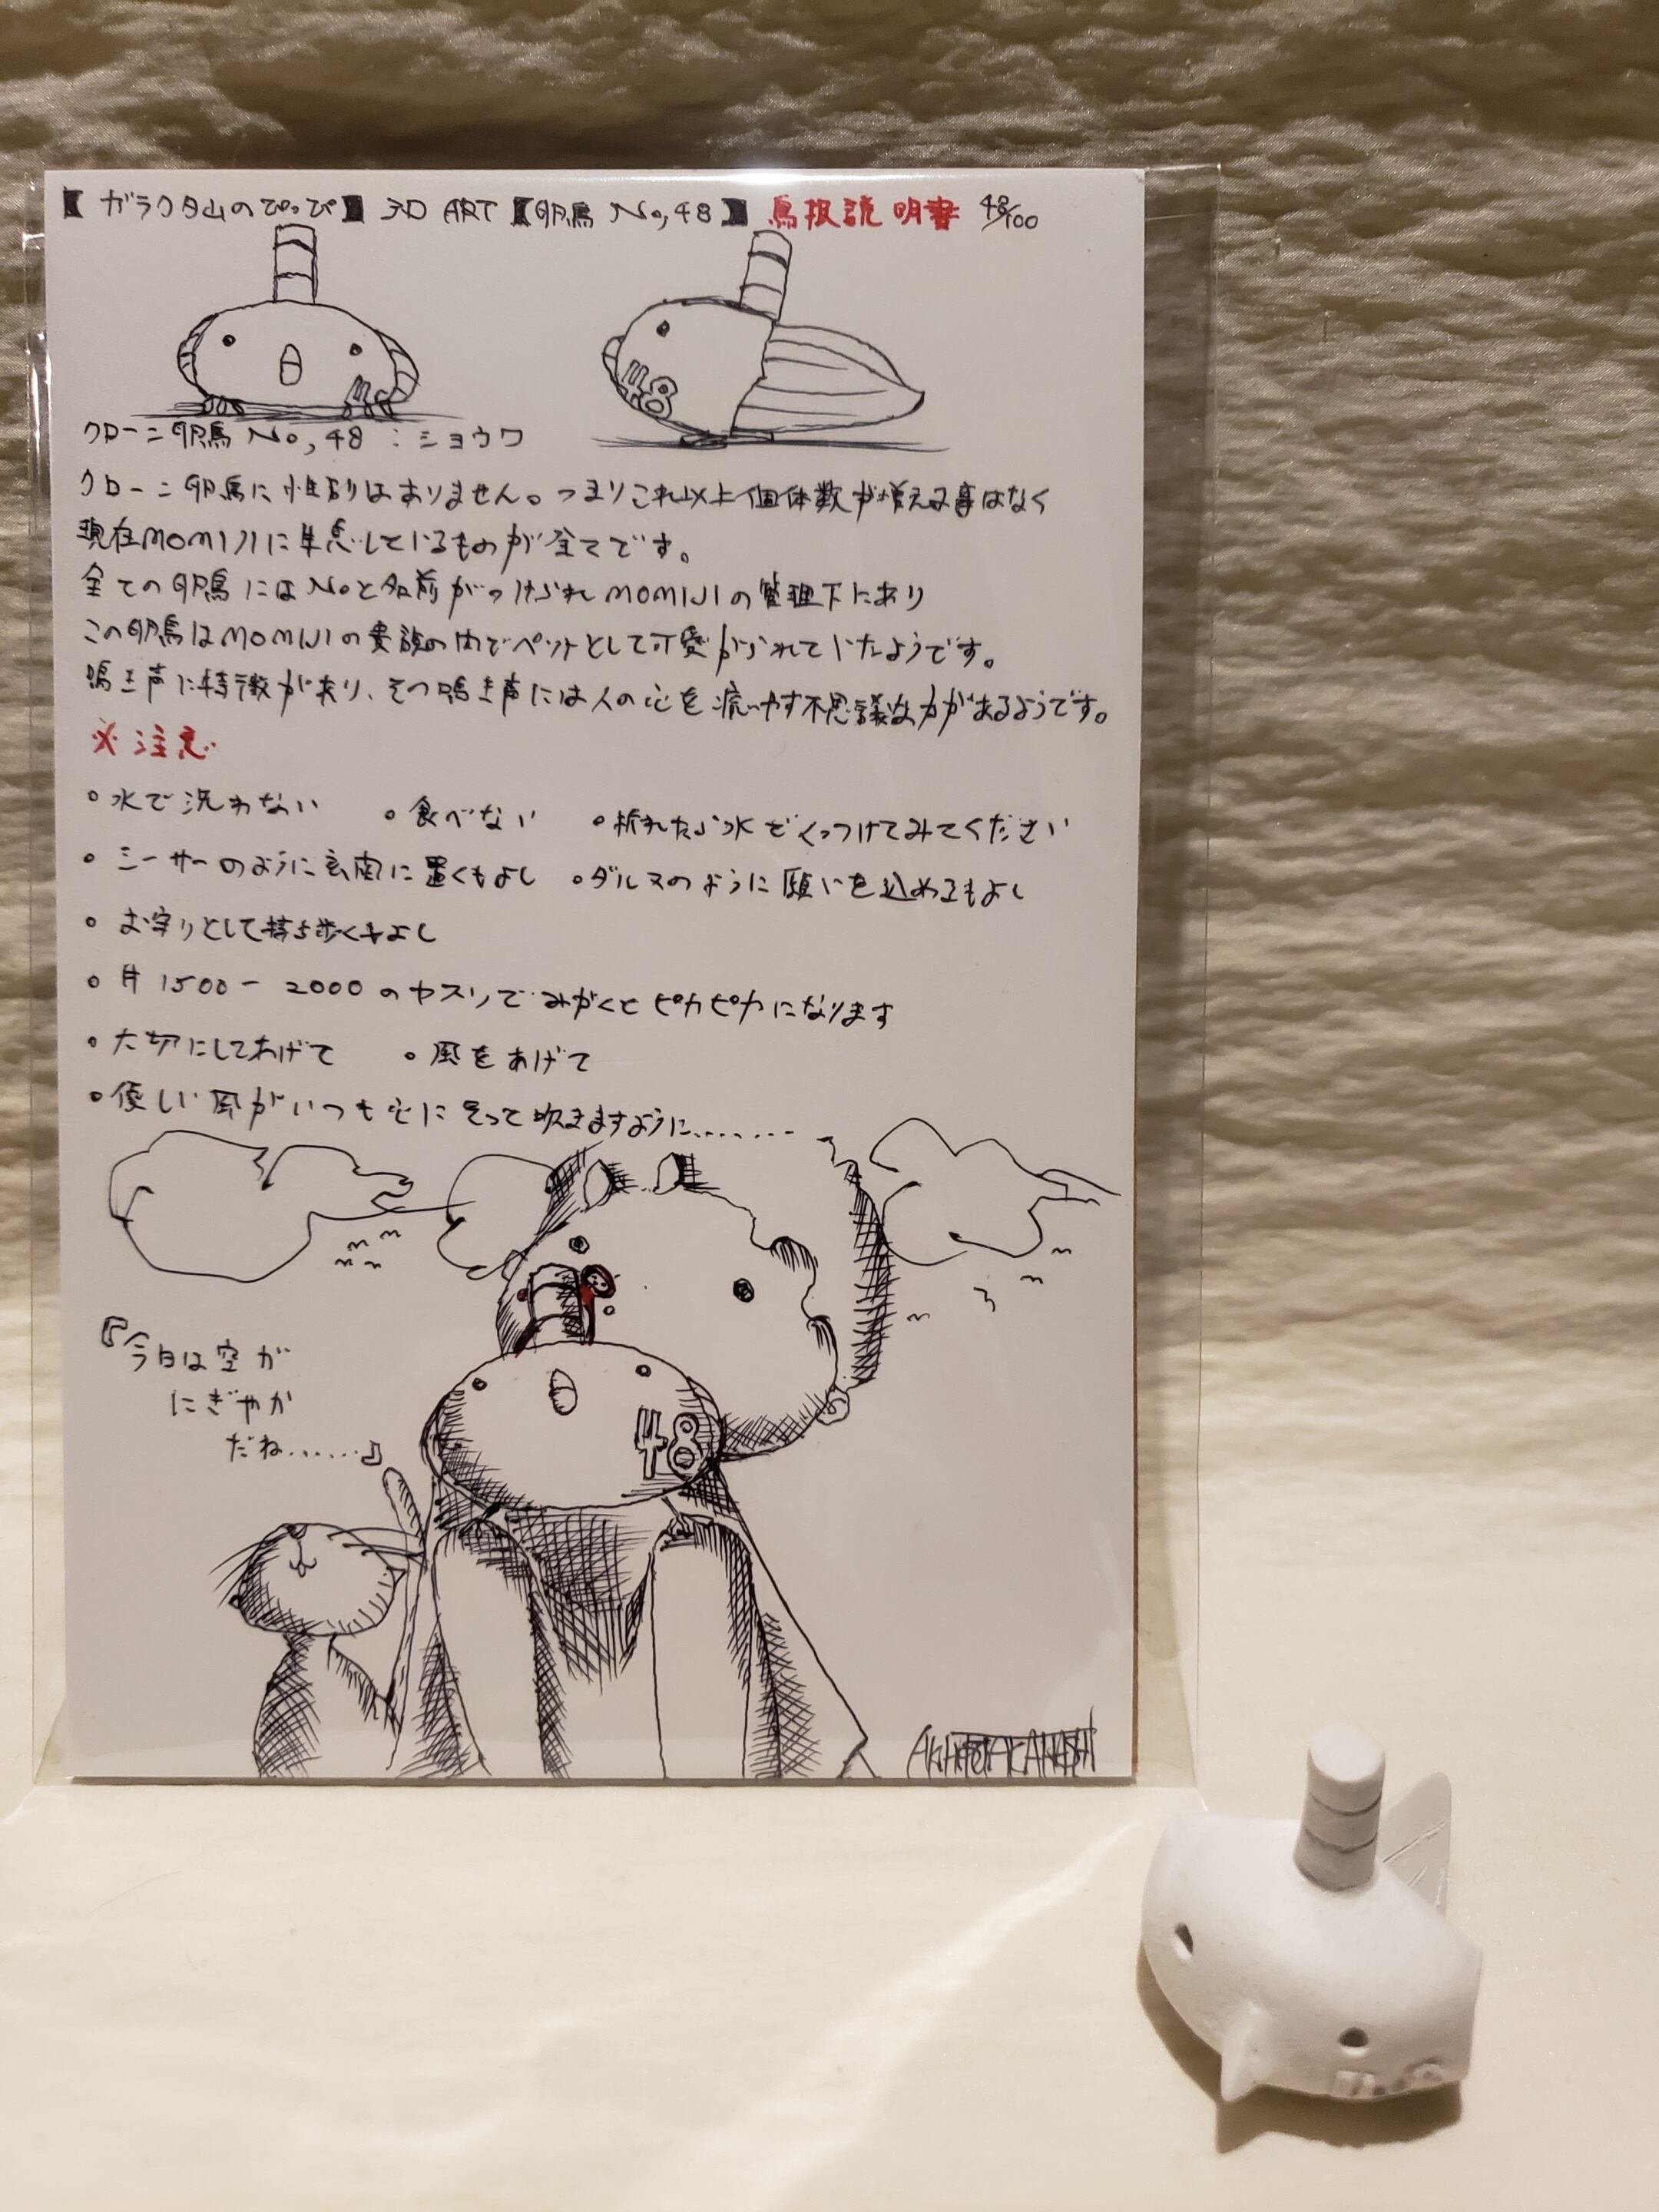 【ガラクタ山のぴっぴ】3D ART【卵鳥 No,48】鳥扱説明書 48/100
48
クローン卵鳥 No,48 : ショウワ
クローン卵鳥に性別はありません。つまりこれ以上個体数が増える事はなく
現在MOMIJIに生息しているものが全てです。
全ての卵鳥にはNoと名前がつけられMOMIJIの管理下にあり
この卵鳥はMOMIJIの貴族の内でペットとして可愛がられていたようです。
鳴き声に特徴があり、その鳴き声には人の心を癒やす不思議な力があるようです。
※注意
◦水で洗わない ◦食べない ◦折れたら水でくっつけてみてください
◦シーサーのように玄関に置くもよし ◦ダルマのように願いを込めるもよし
◦お守りとして持ち歩くもよし
◦#1500-2000のヤスリでみがくとピカピカになります
◦大切にしてあげて ◦風をあげて
◦優しい風がいつも心にそって吹きますように........
『今日は空が
にぎやか
だね......』
48
AKIHITOTAKAHASHI